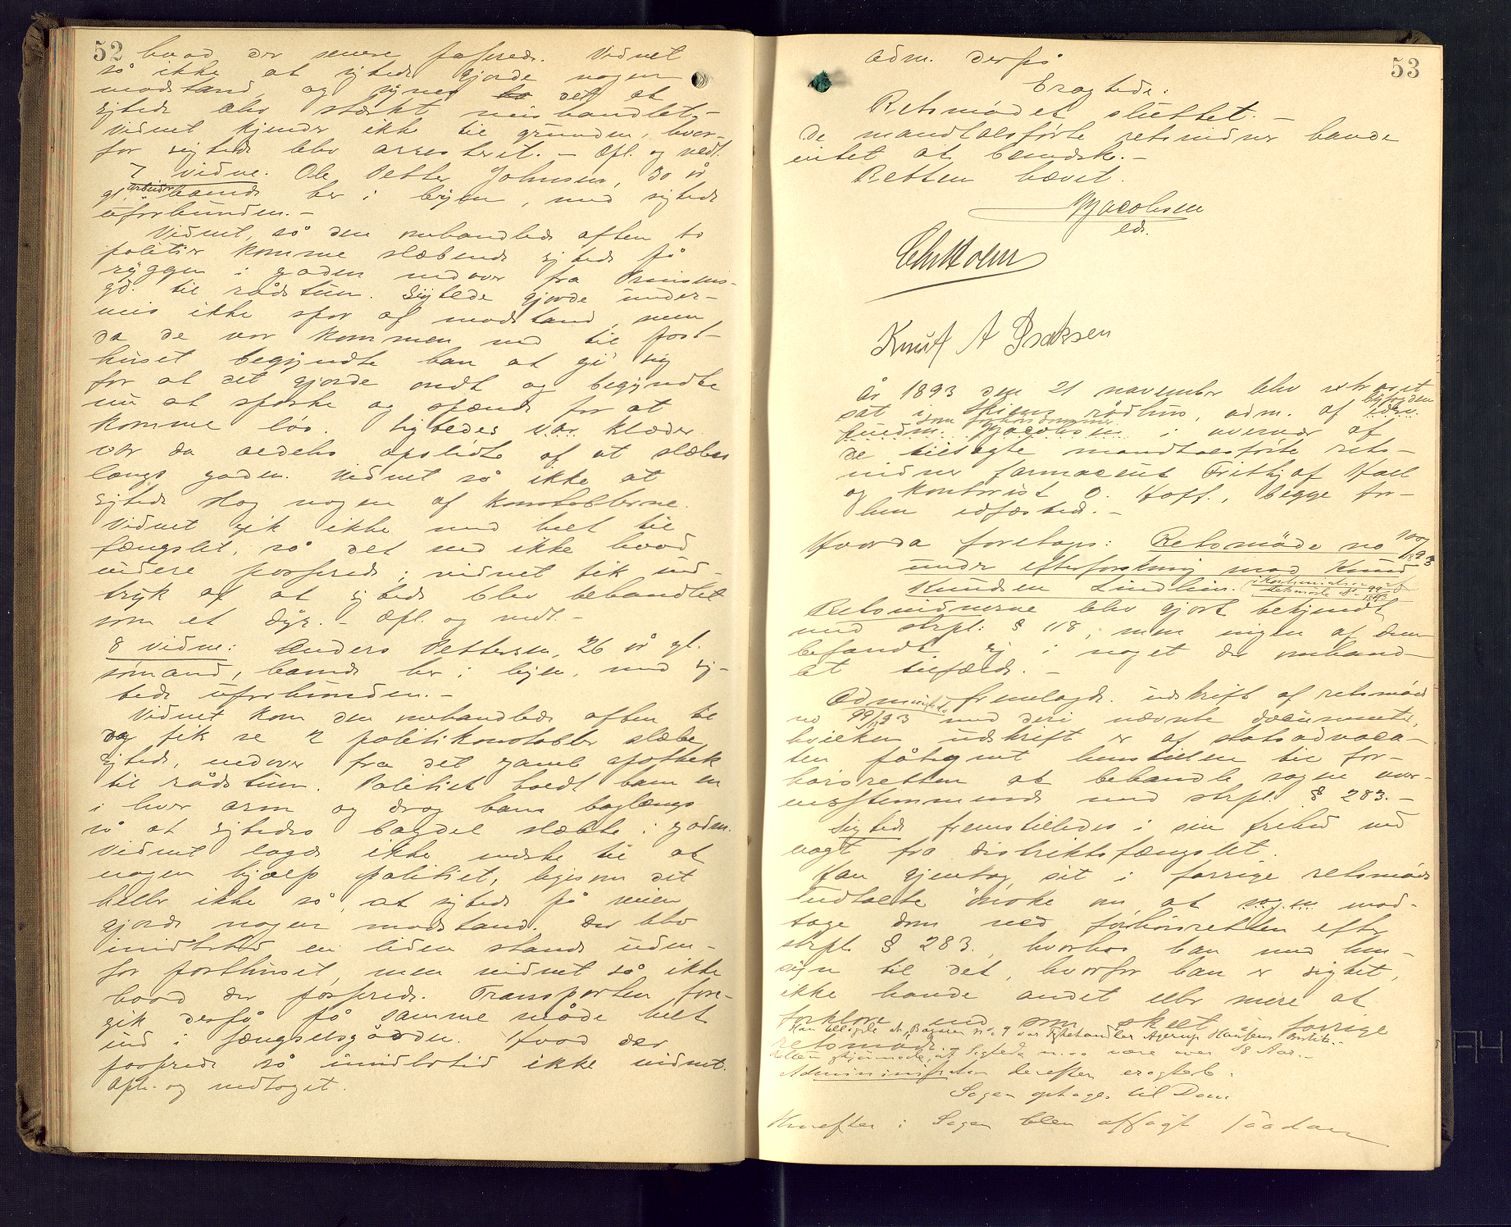 52
hvad der senere passerede. Vidnet
så ikke at sigtede gjorde nogen
modstand, og synes det at
sigtede blev stærkt mishandlet,
vidnet kjender ikke til grunden, hvor-
for sigtede blev arresteret. – Opl. og vedt.
7 vidne. Ole Petter Johnsen, 30 år
gl. arbeider, bænde her i byen, med sigtede
uforbunden. –
Vidnet så den omhandlede aften to
politier komme slæbende sigtede på
ryggen i gaden nedover fra Prinsens-
gd. til rådstuen. Sigtede gjorde under-
veis ikke spor af modstand, men
da de var kommen ned til post-
huset begyndte han at gi sig
for at det gjorde ondt og begyndte
nu at sparke og spænde for at
komme løs. Sigtedes klæder
var da aldeles opslidte af at slæbes
langs gaden. Vidnet så ikke at
sigtede slog nogen af konstablerne.
Vidnet gik ikke med helt til
fængslet, så det ved ikke hvad
videre passerede; vidnet fik ind-
tryk af at sigtede blev behandlet
som et dyr. – Opl. og vedt. –
8 vidne: Anders Pettersen, 26 år gl.
sømand, bænde her i byen, med sig-
tede uforbunden. –
Vidnet kom den omhandlede aften til
og fik se 2 politikonstabler slæbe
sigtede, nedover fra det gamle apothek
til rådstuen. Politiet holdt ham en
i hver arm og drog ham baglængs
så at sigtedes bagdel slæbte i gaden.
Vidnet lagde ikke mærke til at
nogen hjalp politiet, ligesom det
heller ikke så, at sigtede på veien
gjorde nogen modstand. Der blev
imidlertid en liden stands uden-
for posthuset, men vidnet så ikke
hvad der passerede. Transporten fore-
gik derpå på samme måde helt
ind i fængselsgården. Hvad der
passerede så imidlertid ikke vidnet.
Opl. og vedtaget.
53
Adm. derpå
Eragtede:
Retsmødet sluttet. –
De mandtalsførte retsvidner havde
intet at bemærke. –
Retten hævet.
Jacobsen
ed.
Chr Holm
Knut A Isaksen
År 1893 den 21 november blev extraret
sat i Skiens rådhus, adm. af byfogden
som forhørsdommer
fuldm. Jacobsen i overvær af
de tilsagte mandtalsførte rets-
vidner farmaceut Fritjof Hall
og kontorist O. Hoff, begge for-
hen edfæsted. –
Hvorda foretoges: Retsmøde no 100/1893
under efterforskning mod Knud
Knudsen Lindlien. i kontinuation af
retsmøde no 99/1893
Retsvidnerne blev gjort bekjendt
med strpl: § 118, men ingen af dem
befandt sig i noget der omhand-
let tilfælde. –
Administr. fremlagde udskrift af retsmøde
no 99/1893 med deri nævnte documenter,
hvilken udskrift er af statsadvoca-
ten påtegnet henstillen til for-
hørsretten at behandle sagen over-
ensstemmende med strpl. § 283. –
Sigtede fremstilledes i sin frihed ved
vagt fra distriktsfængslet.
Han gjentog sit i forrige retsmøde
udtalte ønske om at sagen mod-
tage dom ved forhørsretten efter
strpl § 283, hvorhos han med hen-
syn til det, hvorfor han er sigtet,
ikke havde andet eller mere at
forklare end som skeet i forrige
retsmøde.
Administrator derefter eragtede:
Sagen optages til Dom
Herefter i Sagen blev afsagt saadan